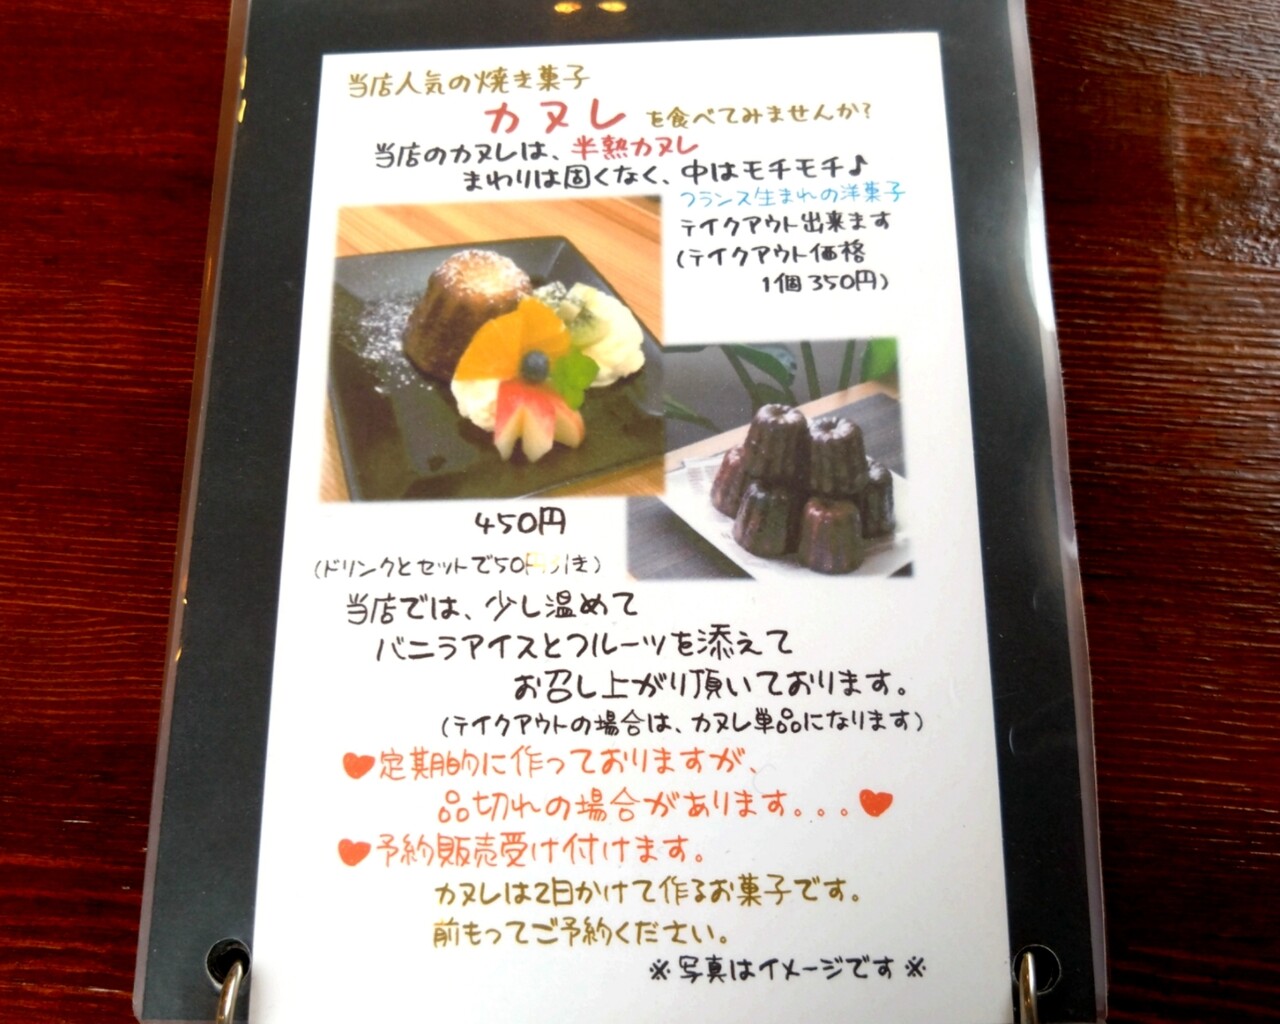 当店人気の焼き菓子
カヌレ を食べてみませんか?
当店のカヌレは、半熟カヌレ
まわりは固くなく、中はモチモチ♪
フランス生まれの洋菓子
テイクアウト出来ます
(テイクアウト価格
1個350円)
450円
(ドリンクとセットで50円引き)
当店では、少し温めて
バニラアイスとフルーツを添えて
お召し上がり頂いております。
(テイクアウトの場合は、カヌレ単品になります)
♥定期的に作っておりますが、
品切れの場合があります。。。♥
♥予約販売受け付けます。
カヌレは2日かけて作るお菓子です。
前もってご予約ください。
※写真はイメージです※